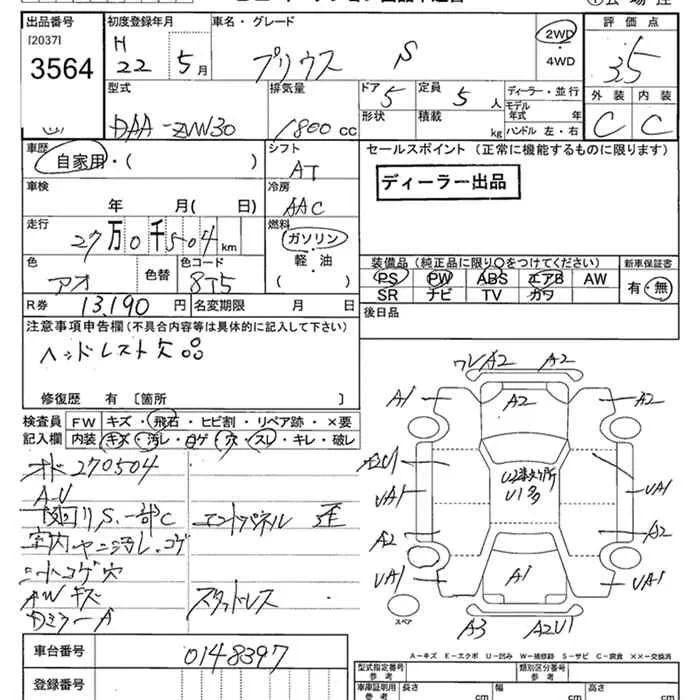 出品番号 初度登録年月 車名・グレード 評価点
[2037] 3564
H 22 5月 プリウス S 2WD ・ 4WD 3.5
型式 排気量 ドア 定員 ディーラー・並行 外装 内装
DAA-ZVW30 1800cc 5 5人 モデル年式 年 C C
形状 積載 kg ハンドル 左・右
車歴 シフト セールスポイント (正常に機能するものに限ります)
自家用・( ) AT ディーラー出品
車検 冷房
年 月( 日) AAC
走行 燃料
27万0千504km ガソリン
軽・油
( )
色 色替 色コード 装備品 (純正品に限り○をつけてください) 新車保証書
アオ 8T5 PS PW ABS エアB AW 有・無
SR ナビ TV カワ
R券 13,190円 名変期限 月 日 後日品
注意事項申告欄(不具合内容等は具体的に記入して下さい)
ヘッドレスト欠品
修復歴 有 [箇所 ]
検査員記入欄 FW キズ・飛石・ヒビ割・リペア跡・×要
内装 キズ・汚レ・コゲ・穴・スレ・キレ・破レ
オド 270504
A-U
下回リS.一部C エンドパネル 歪
室内ヤニ汚レ.コゲ
シートコゲ穴
AWキズ スタッドレス
Gガラ-A
ワレA2 A2
A1 A2 A2
A2U1 U2数カ所 U1多
UA1 UA1
A2 A2
UA1 A1 UA1
スペア A3 A2U1
A－キズ E－エクボ U－凹み W－補修跡 S－サビ C－腐食 ××－交換済
車台番号 0148397
登録番号
型式指定番号 参考 類別区分番号 参考
車庫証明用 参考 長さ cm 幅 cm 高さ cm